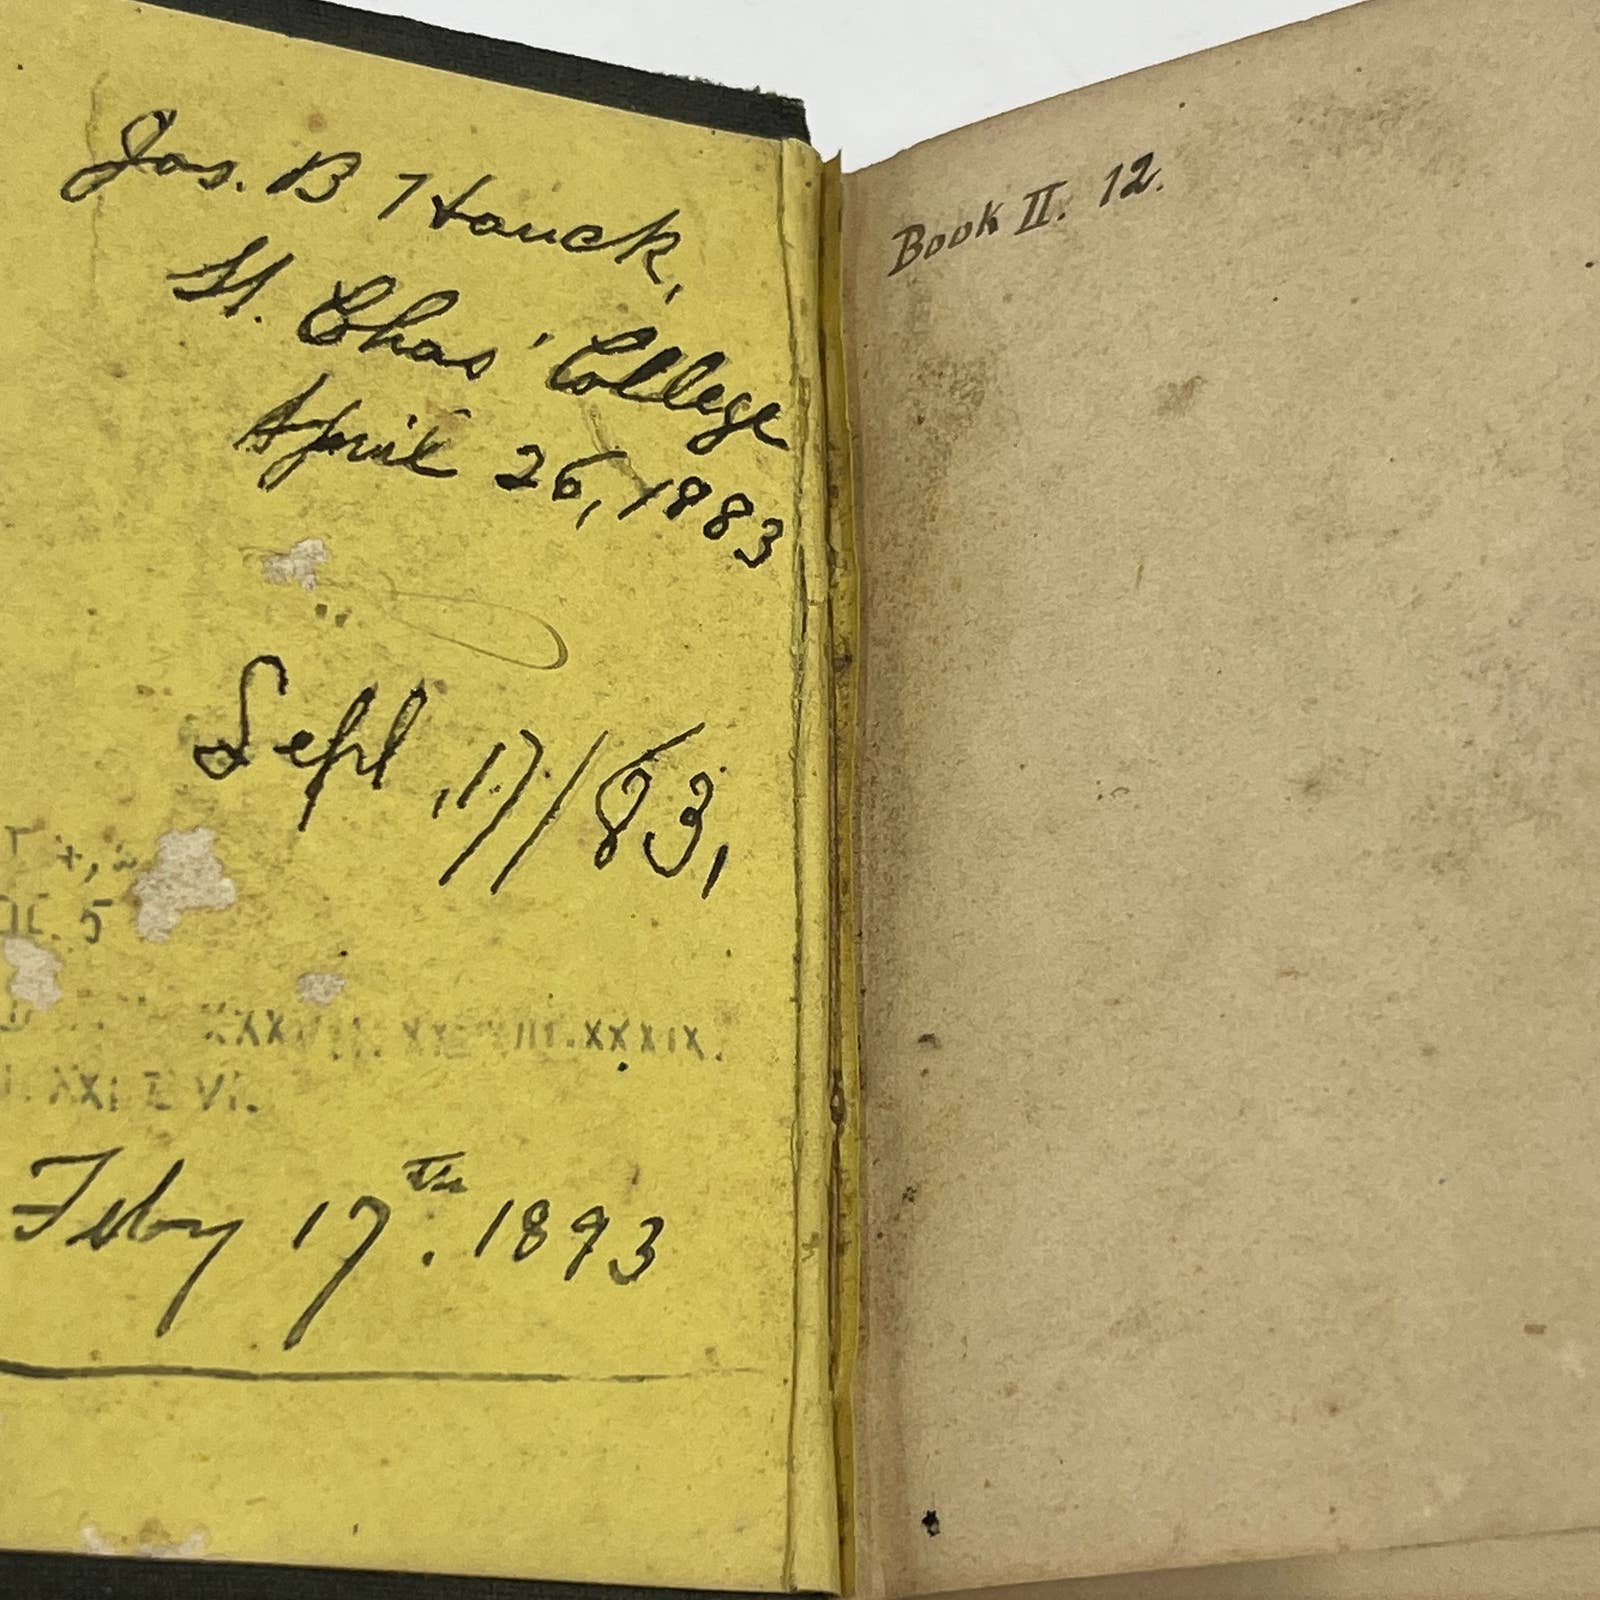 Jas. B Houck,
St. Chas' College
April 26, 1883
Sept, 17/83,
5
XXXIX.
VI.
Feby 17th. 1893
Book II. 12.